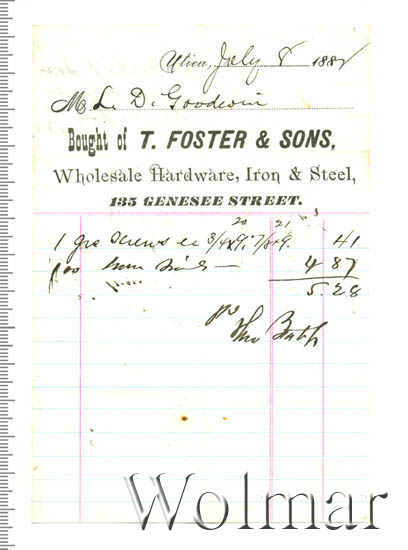 Utica, July 8 188
M L. D. Goodwin
Bought of T. FOSTER & SONS,
Wholesale Hardware, Iron & Steel,
135 GENESEE STREET.
20 21
1 gro Screws ea 3/4x9, 7/8x9. 41
100 4 87
5.28
Pd
Wolmar